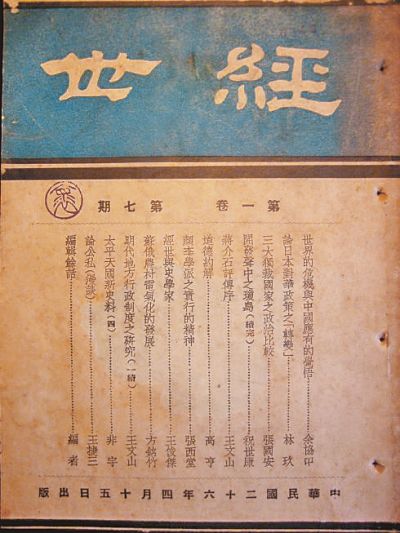 經世
第一卷 第七期
世界的危機與中國應有的覺悟 余協中
論日本對華政策之「轉變」 林玖
三大獨裁國家之政治比較 張國安
開發聲中之瓊島(續完) 祝世康
蔣介石評傳序 王文山
道德約解 高亨
顏李學派之實行的精神 張西堂
經世與史學家 王俊傑
蘇俄農村電氣化的發展 方銘竹
明代地方行政制度之研究(一續) 王文山
太平天國新史料(四) 非宇
論公私(漫談) 王捷三
編輯餘話 編者
中華民國二十六年四月十五日出版